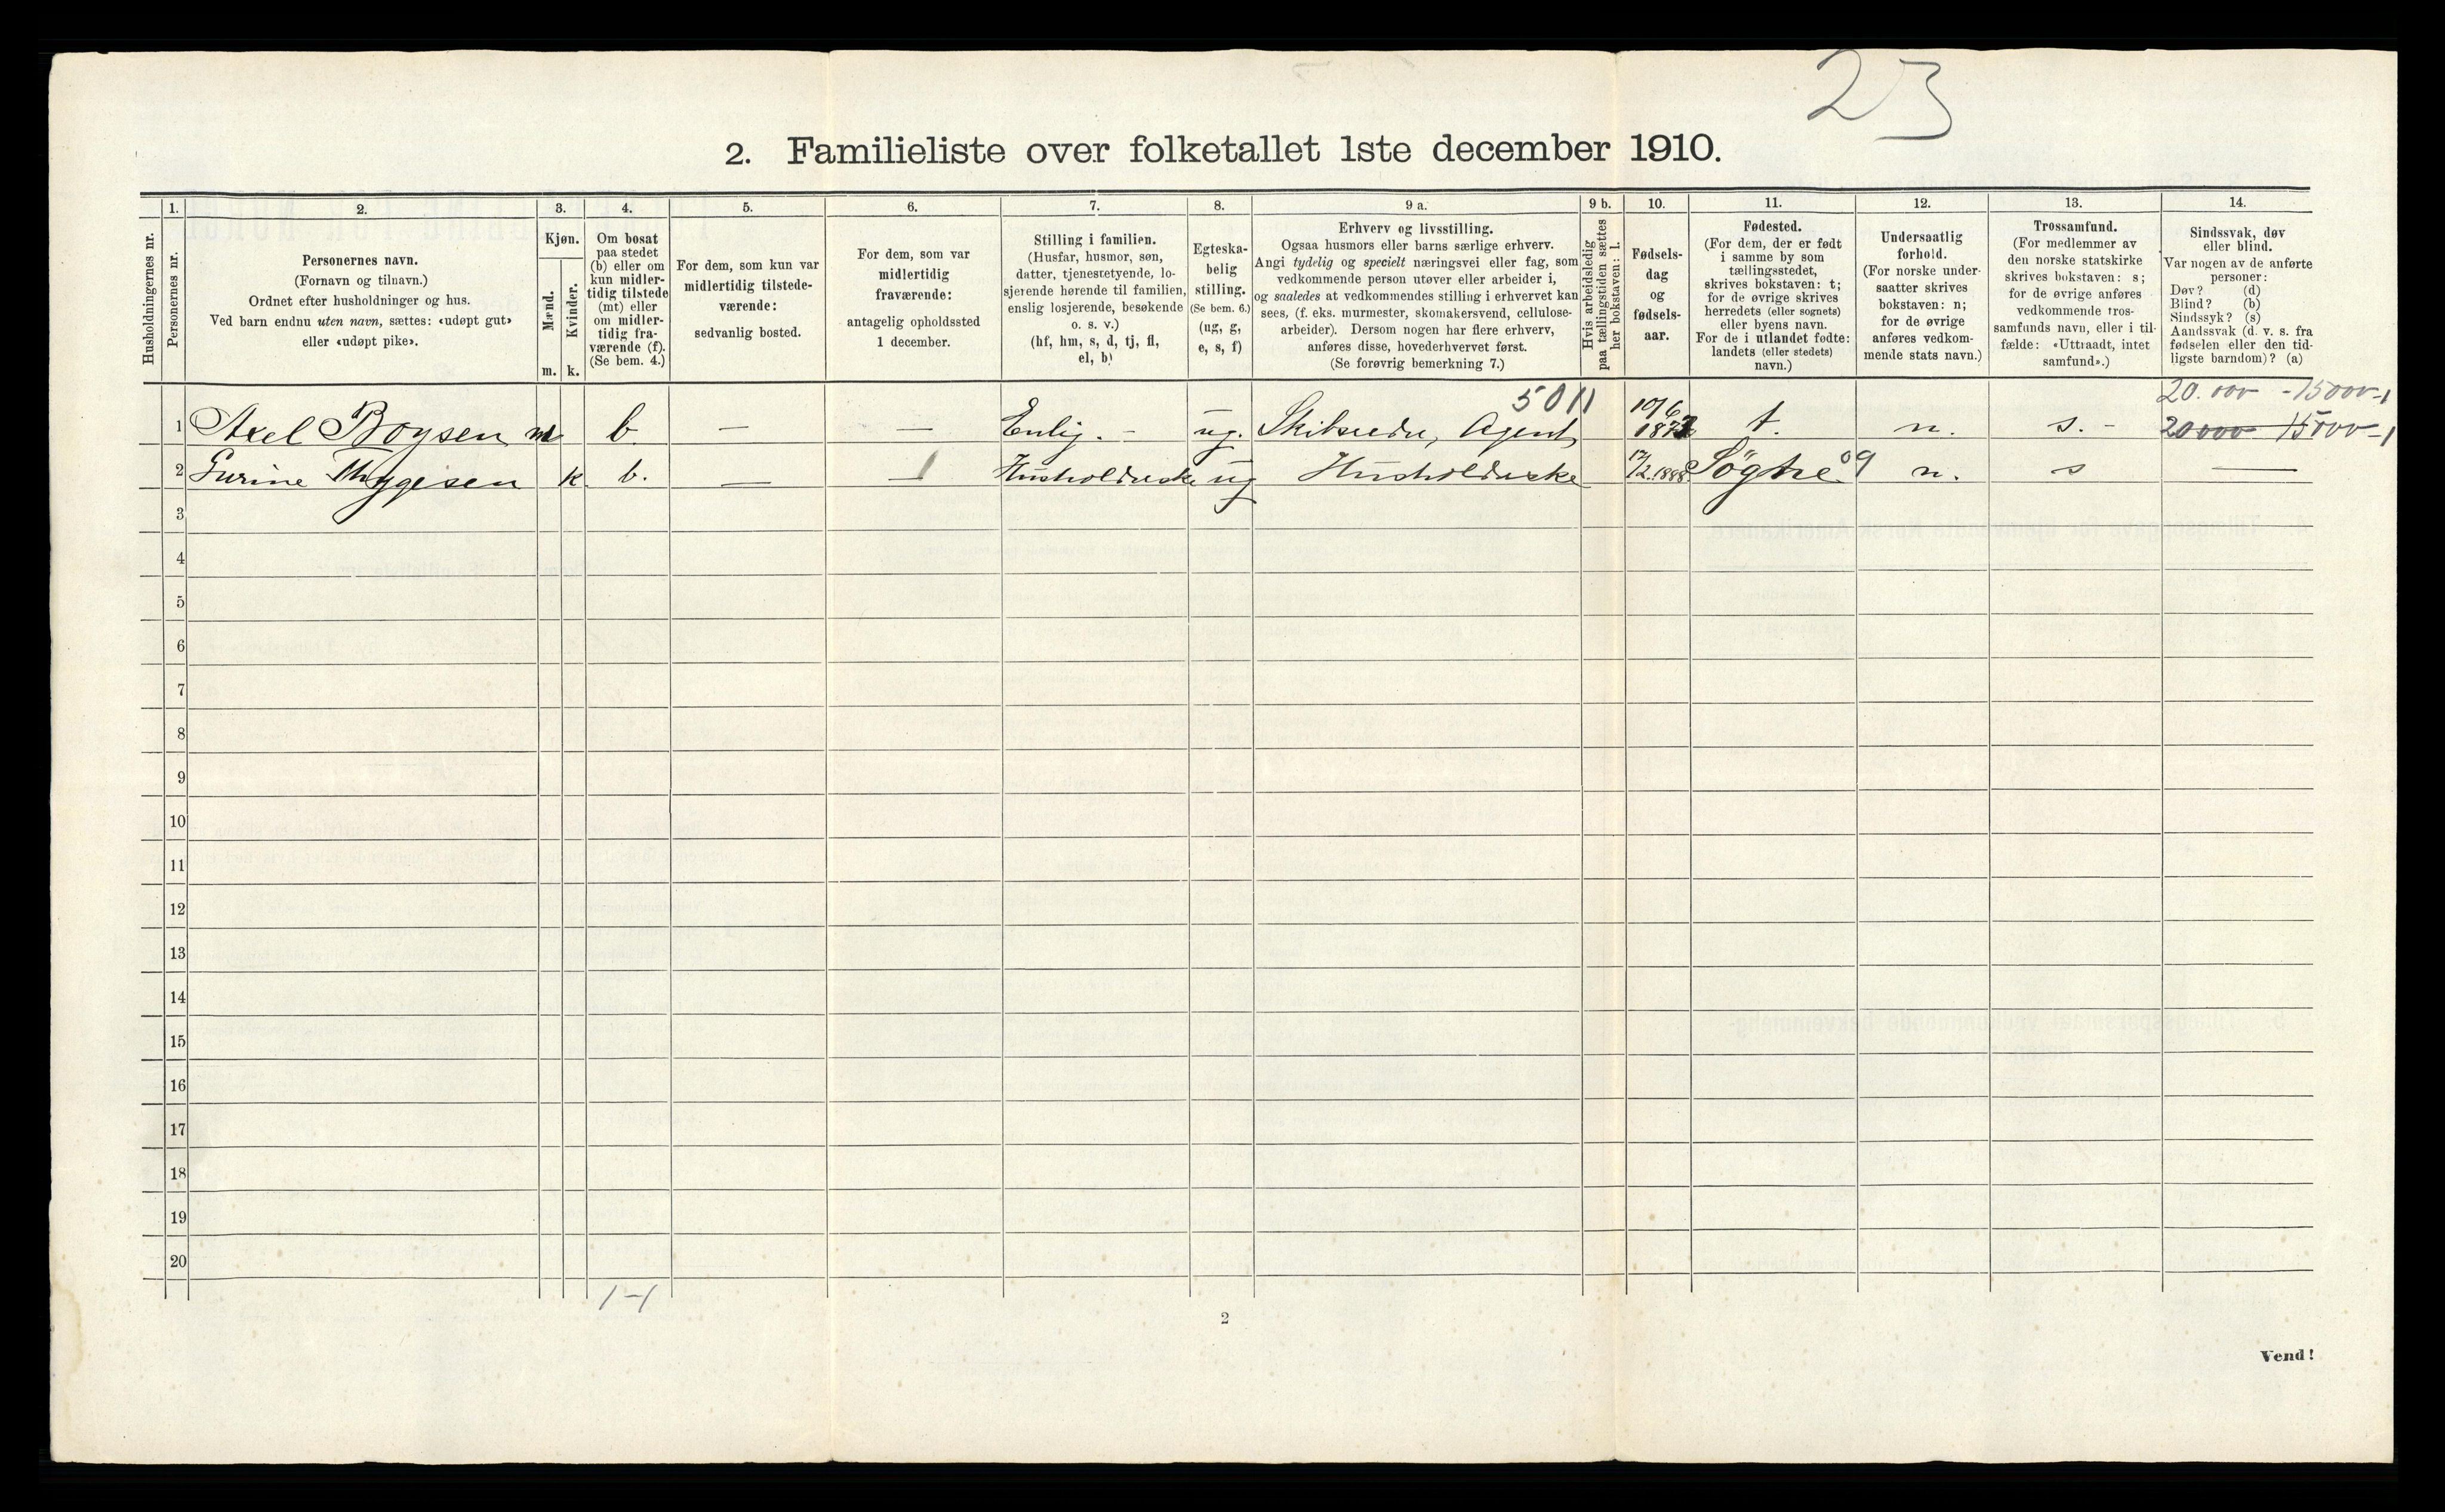 23
2. Familieliste over folketallet 1ste december 1910.
Husholdningernes nr.
1.
Personernes nr.
2.
Personernes navn.
(Fornavn og tilnavn.)
Ordnet efter husholdninger og hus.
Ved barn endnu uten navn, sættes: «udøpt gut»
eller «udøpt pike».
3.
Kjøn.
Mænd.
Kvinder.
m. k.
4.
Om bosat
paa stedet
(b) eller om
kun midler-
tidig tilstede
(mt) eller
om midler-
tidig fra-
værende (f).
(Se bem. 4.)
5.
For dem, som kun var
midlertidig tilstede-
værende:
sedvanlig bosted.
6.
For dem, som var
midlertidig
fraværende:
antagelig opholdssted
1 december.
7.
Stilling i familien.
(Husfar, husmor, søn,
datter, tjenestetyende, lo-
sjerende hørende til familien,
enslig losjerende, besøkende
o. s. v.)
(hf, hm, s, d, tj, fl,
el, b)
8.
Egteska-
belig
stilling.
(Se bem. 6.)
(ug, g,
e, s, f)
9 a.
Erhverv og livsstilling.
Ogsaa husmors eller barns særlige erhverv.
Angi tydelig og specielt næringsvei eller fag, som
vedkommende person utøver eller arbeider i,
og saaledes at vedkommendes stilling i erhvervet kan
sees, (f. eks. murmester, skomakersvend, cellulose-
arbeider). Dersom nogen har flere erhverv,
anføres disse, hovederhvervet først.
(Se forøvrig bemerkning 7.)
9 b.
Hvis arbeidsledig
paa tællingstiden sættes
her bokstaven: l.
10.
Fødsels-
dag
og
fødsels-
aar.
11.
Fødested.
(For dem, der er født
i samme by som
tællingsstedet,
skrives bokstaven: t;
for de øvrige skrives
herredets (eller sognets)
eller byens navn.
For de i utlandet fødte:
landets (eller stedets)
navn.)
12.
Undersaatlig
forhold.
(For norske under-
saatter skrives
bokstaven: n;
for de øvrige
anføres vedkom-
mende stats navn.)
13.
Trossamfund.
(For medlemmer av
den norske statskirke
skrives bokstaven: s;
for de øvrige anføres
vedkommende tros-
samfunds navn, eller i til-
fælde: «Uttraadt, intet
samfund».)
14.
Sindssvak, døv
eller blind.
Var nogen av de anførte
personer:
Døv? (d)
Blind? (b)
Sindssyk? (s)
Aandssvak (d. v. s. fra
fødselen eller den tid-
ligste barndom)? (a)
5011
20.000 - 15000 - 1
1 Axel Boysen m b. — — Enlig. - ug. Skibsreder, Agent 10/6 1873 t. n. s. - 20000 15000 - 1
2 Gurine Thygesen k. b. — — Husholderske ug Husholderske 12/2.1888 Søgne 09 n. s —
3
4
5
6
7
8
9
10
11
12
13
14
15
16
17
18
19
20
1-1
2
Vend!